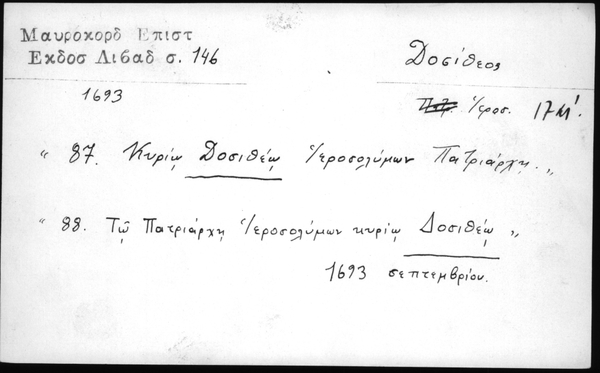 Μαυροκορδ Επιστ
Εκδοσ Λιβαδ σ. 146
Δοσίθεος
1693
Ἱεροσ. 17
" 87. Κυρίῳ Δοσιθέῳ Ἱεροσολύμων Πατριάρχῃ. „
" 88. Τῷ Πατριάρχῃ Ἱεροσολύμων κυρίῳ Δοσιθέῳ „
1693 σεπτεμβρίου.